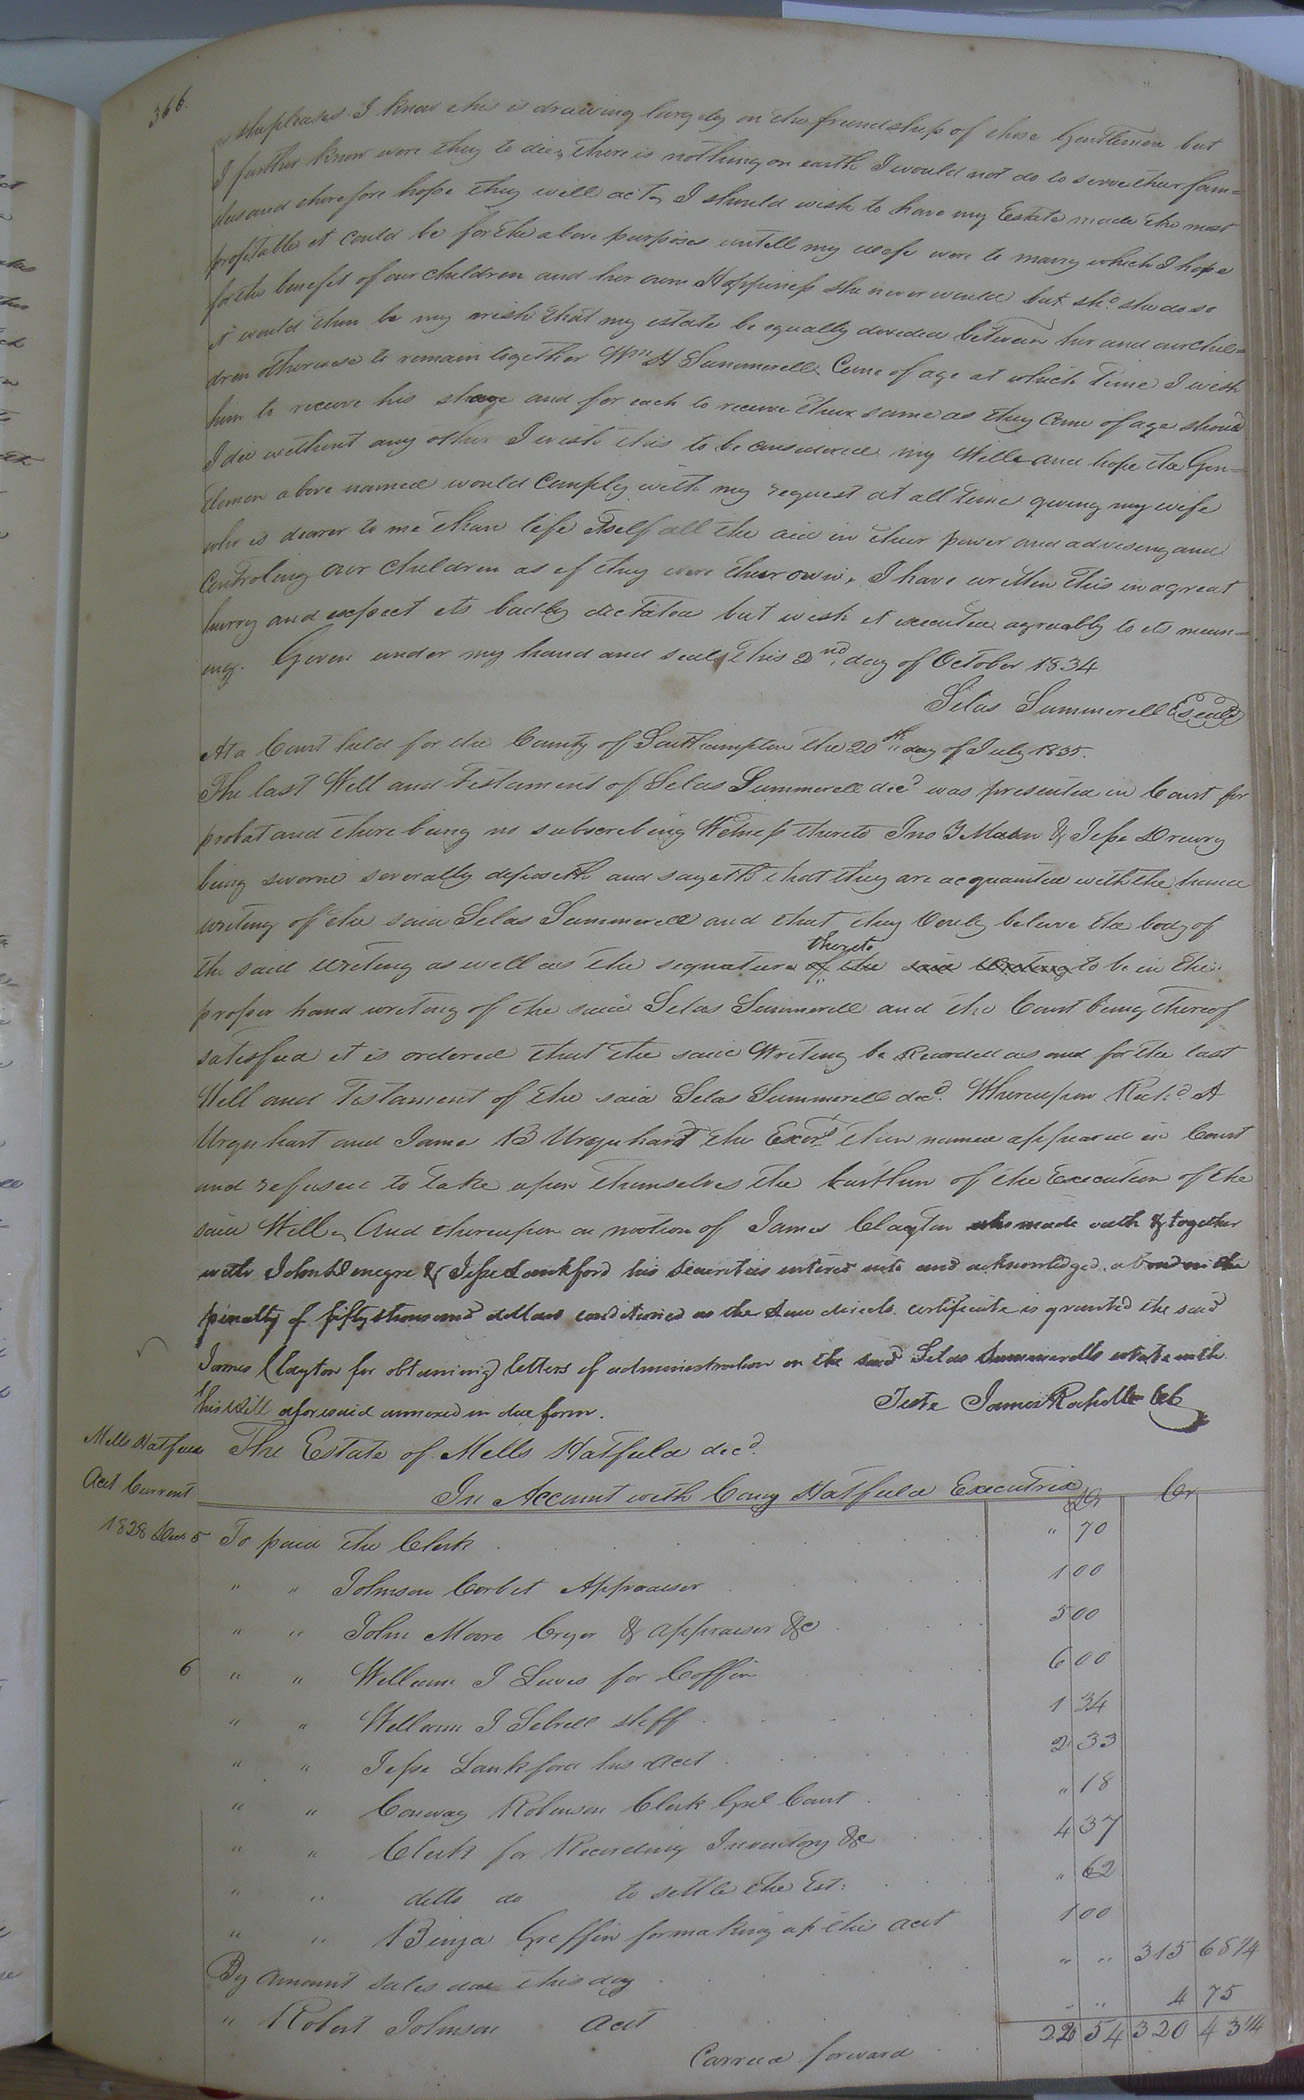 366.
as she pleases. I know this is drawing largely on the friendship of those Gentlemen but
I further know were they to die, there is nothing on earth I would not do to serve their fam=
ilies and therefore hope they will act, I should wish to have my Estate made the most
profitable it could be for the above purposes untill my wife were to marry which I hope
for the benefit of our children and her own Happiness she never would but shd. she do so
it would then be my wish that my estate be equally devided between her and our chil=
dren otherwise to remain together Wm. H Summerell Come of age at which time I wish
him to receive his share and for each to receive their same as they Come of age should
I die without any other I wish this to be considered my Will and hope the Gen=
tlemen above named would Comply with my request at all times giving my wife
who is dearer to me than life itself all the aid in their power and adviseing and
Controling our Children as if they were their own. I have written this in a great
hurry and expect its badly dictated but wish it executed agreeably to its mean=
ing. Given under my hand and seal this 2nd. day of October 1834
Silas Summerell Seal
At a Court held for the County of Southampton the 20th day of July 1835.
The last Will and Testament of Silas Summerell decd was presented in Court for
probat and there being no subscribing Witness thereto Jno Y Mason & Jesse Drewry
being sworn severally deposeth and sayeth that they are acquainted with the hand
writing of the said Silas Summerell and that they Verily believe the body of
thereto
the said Writing as well as the signature of the said Writing to be in the
proper hand writing of the said Silas Summerell and the Court being thereof
satisfied it is ordered that the said Writing be Recorded as and for the last
Will and Testament of the said Silas Summerell decd. Whereupon Richd. A
Urquhart and James B Urquhart the Exors. then named appeared in Court
and refused to take upon themselves the burthen of the Execution of the
said Will, And thereupon on motion of James Clayton who made oath & together
with John Denegre & Jesse Lankford his Securities entered into and acknowledged a bond in the
penalty of fifty thousand dollars conditioned as the Law directs certificate is granted the said
James Clayton for obtaining letters of administration on the said Silas Summerells estate with
this Will aforesaid annexed in due form.
Teste James Rochelle CC
Mills Hatfield
Act Current
The Estate of Mills Hatfield decd.
In Account with Cary Hatfield Executrix
Dr Cr
1828 Dec 5 To paid the Clerk " 70
" " Johnson Corbet Appraiser 1 00
" " John Moore Cryer & appraiser &c 5 00
6 " " William J Lewis for Coffin 6 00
" " William J Sebrell shff 1 34
" " Jesse Lankford his act 2 33
" " Conway Robinson Clerk Genl Court " 18
" " Clerk for Recording Inventory &c 4 37
" " ditto do to settle the Est: " 62
" " Binja Griffin for making up this act 1 00
By Amount sales due this day " " 315 68 1/4
" Robert Johnson act " " 4 75
22 54 320 43 1/4
Carried forward